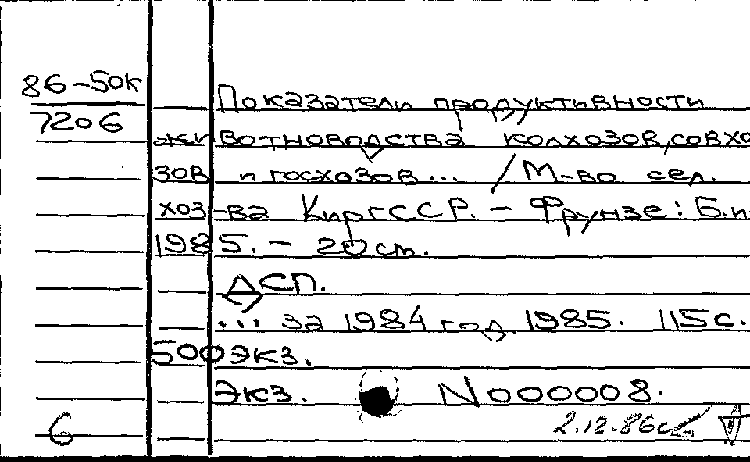 86-50к
7206
Показатели продуктивности
животноводства колхозов, совхо
зов и госхозов... / М-во сел.
хоз-ва КиргССР. - Фрунзе: Б.и
1985. - 20 см.
ДСП.
... за 1984 год. 1985. 115 с.
500 экз.
Экз. N000008.
2.12.86
6